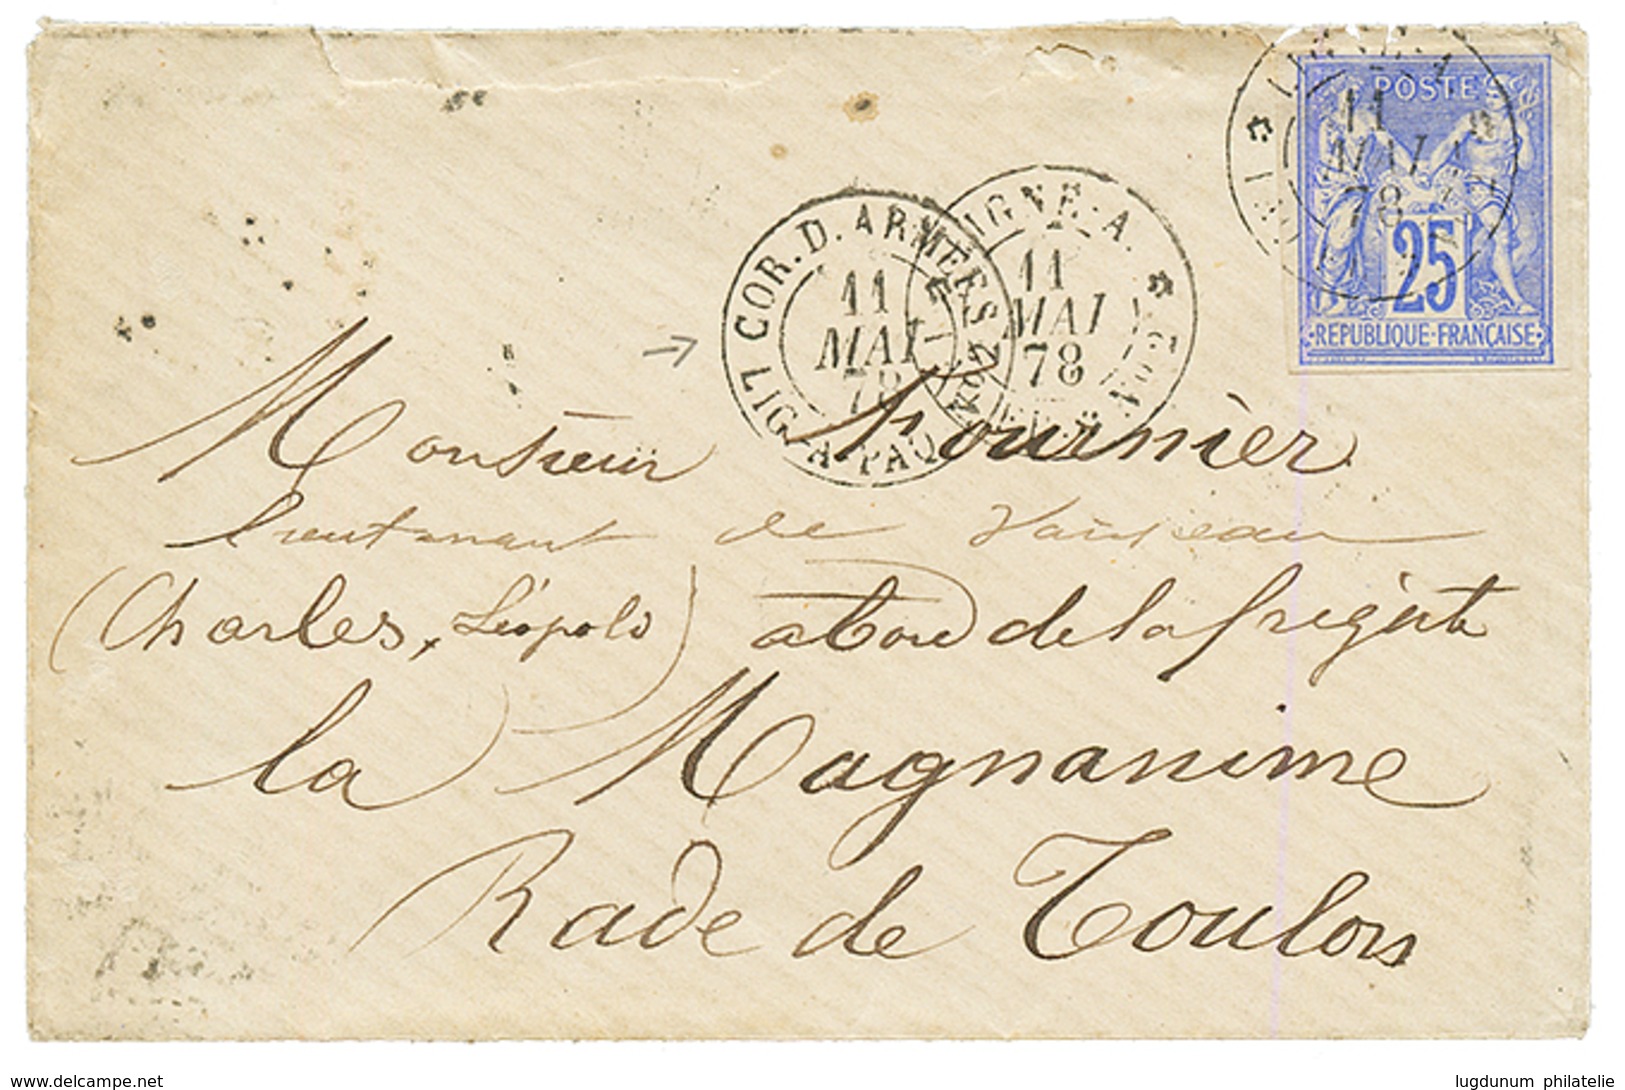 POSTE
11
MAI
78
25
REPUBLIQUE-FRANÇAISE
LIGNE A. Nº2
11
MAI
78
COR. D. ARMEES LIG. A PAQ. Nº2
11
MAI
78
Monsieur Fournier
lieutenant de Vaisseau
(Charles, Léopold) abord de la fregate
la Magnanime
Rade de Toulon
www.delcampe.net
lugdunum philatelie